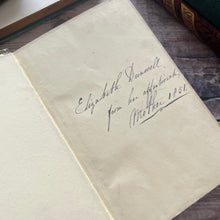 Elizabeth
from her affectionate
Mother 1951.